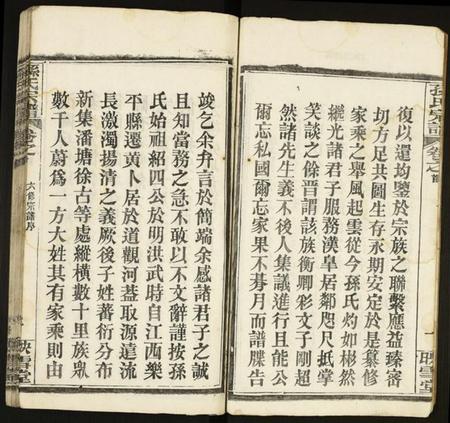 孫氏宗譜 卷之首
映雪堂
復以還均鑒於宗族之聯繫應益臻密
切方足共圖生存永期安定於是纂修
家乘之舉風起雲從今孫氏灼如彬然
繼光諸君子服務漢皐居鄰咫尺抵掌
笑談之餘晋謂該族衡卿彩文子剛超
然諸先生義不後人集議進行且能公
爾忘私國爾忘家果不朞月而譜牒告
竣乞余弁言於簡端余感諸君子之誠
且知當務之急不敢以不文辭謹按孫
氏始祖紹四公於明洪武時自江西樂
平縣遷黄卜居於道觀河葢取源遠流
長激濁揚清之義厥後子姓蕃衍分布
新集潘塘徐古等處縱橫數十里族眾
數千人蔚爲一方大姓其有家乘則由
孫氏宗譜 卷之首
六修宗譜序
映雪堂